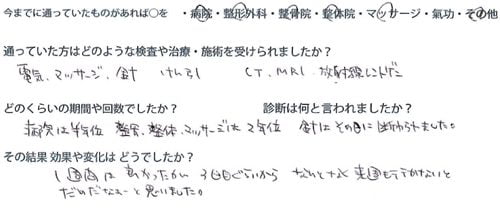 今までに通っていたものがあれば○を ・病院・整形外科・整骨院・整体院・マッサージ・氣功・その他
通っていた方はどのような検査や治療・施術を受けられましたか？
電気、マッサージ、針 けん引 CT、MRI、放射線
どのくらいの期間や回数でしたか？ 診断は何と言われましたか？
病院は半年位 整骨、整体、マッサージは2年位 針はその日に断わられました。
その結果 効果や変化は どうでしたか？
1週間は良かったが 3日目ぐらいから
だめだなぁーと思いました。